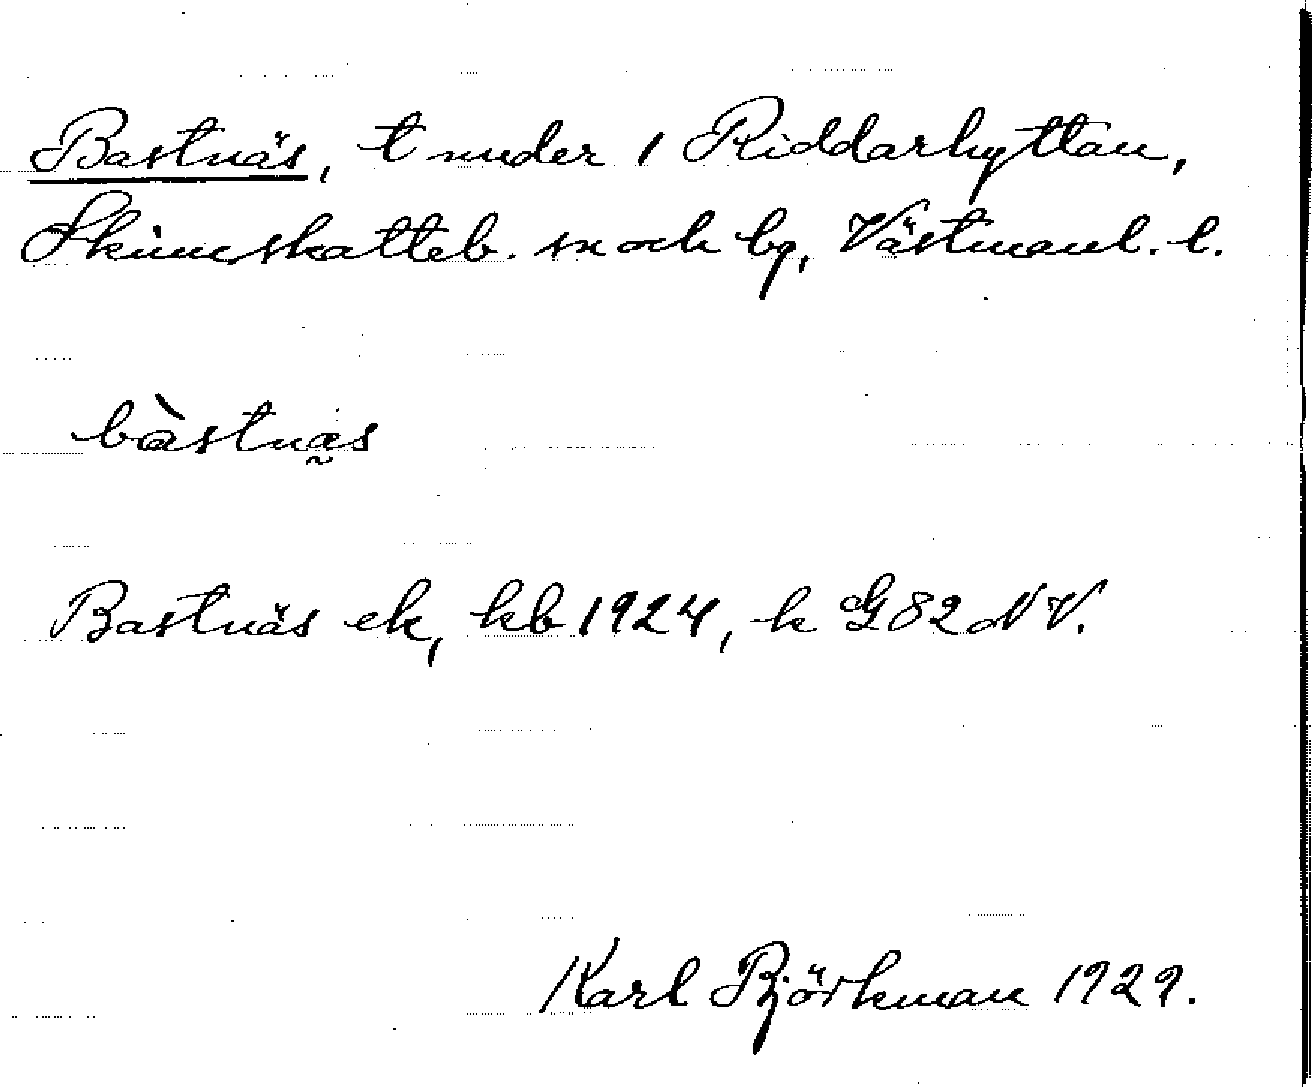 Bastnäs, t under 1 Riddarhyttan,
Skinnskatteb. sn och bg, Västmanl. l.
bàstnä̰s
Bastnäs ek, kb 1924, k G82NV.
Karl Björkman 1929.